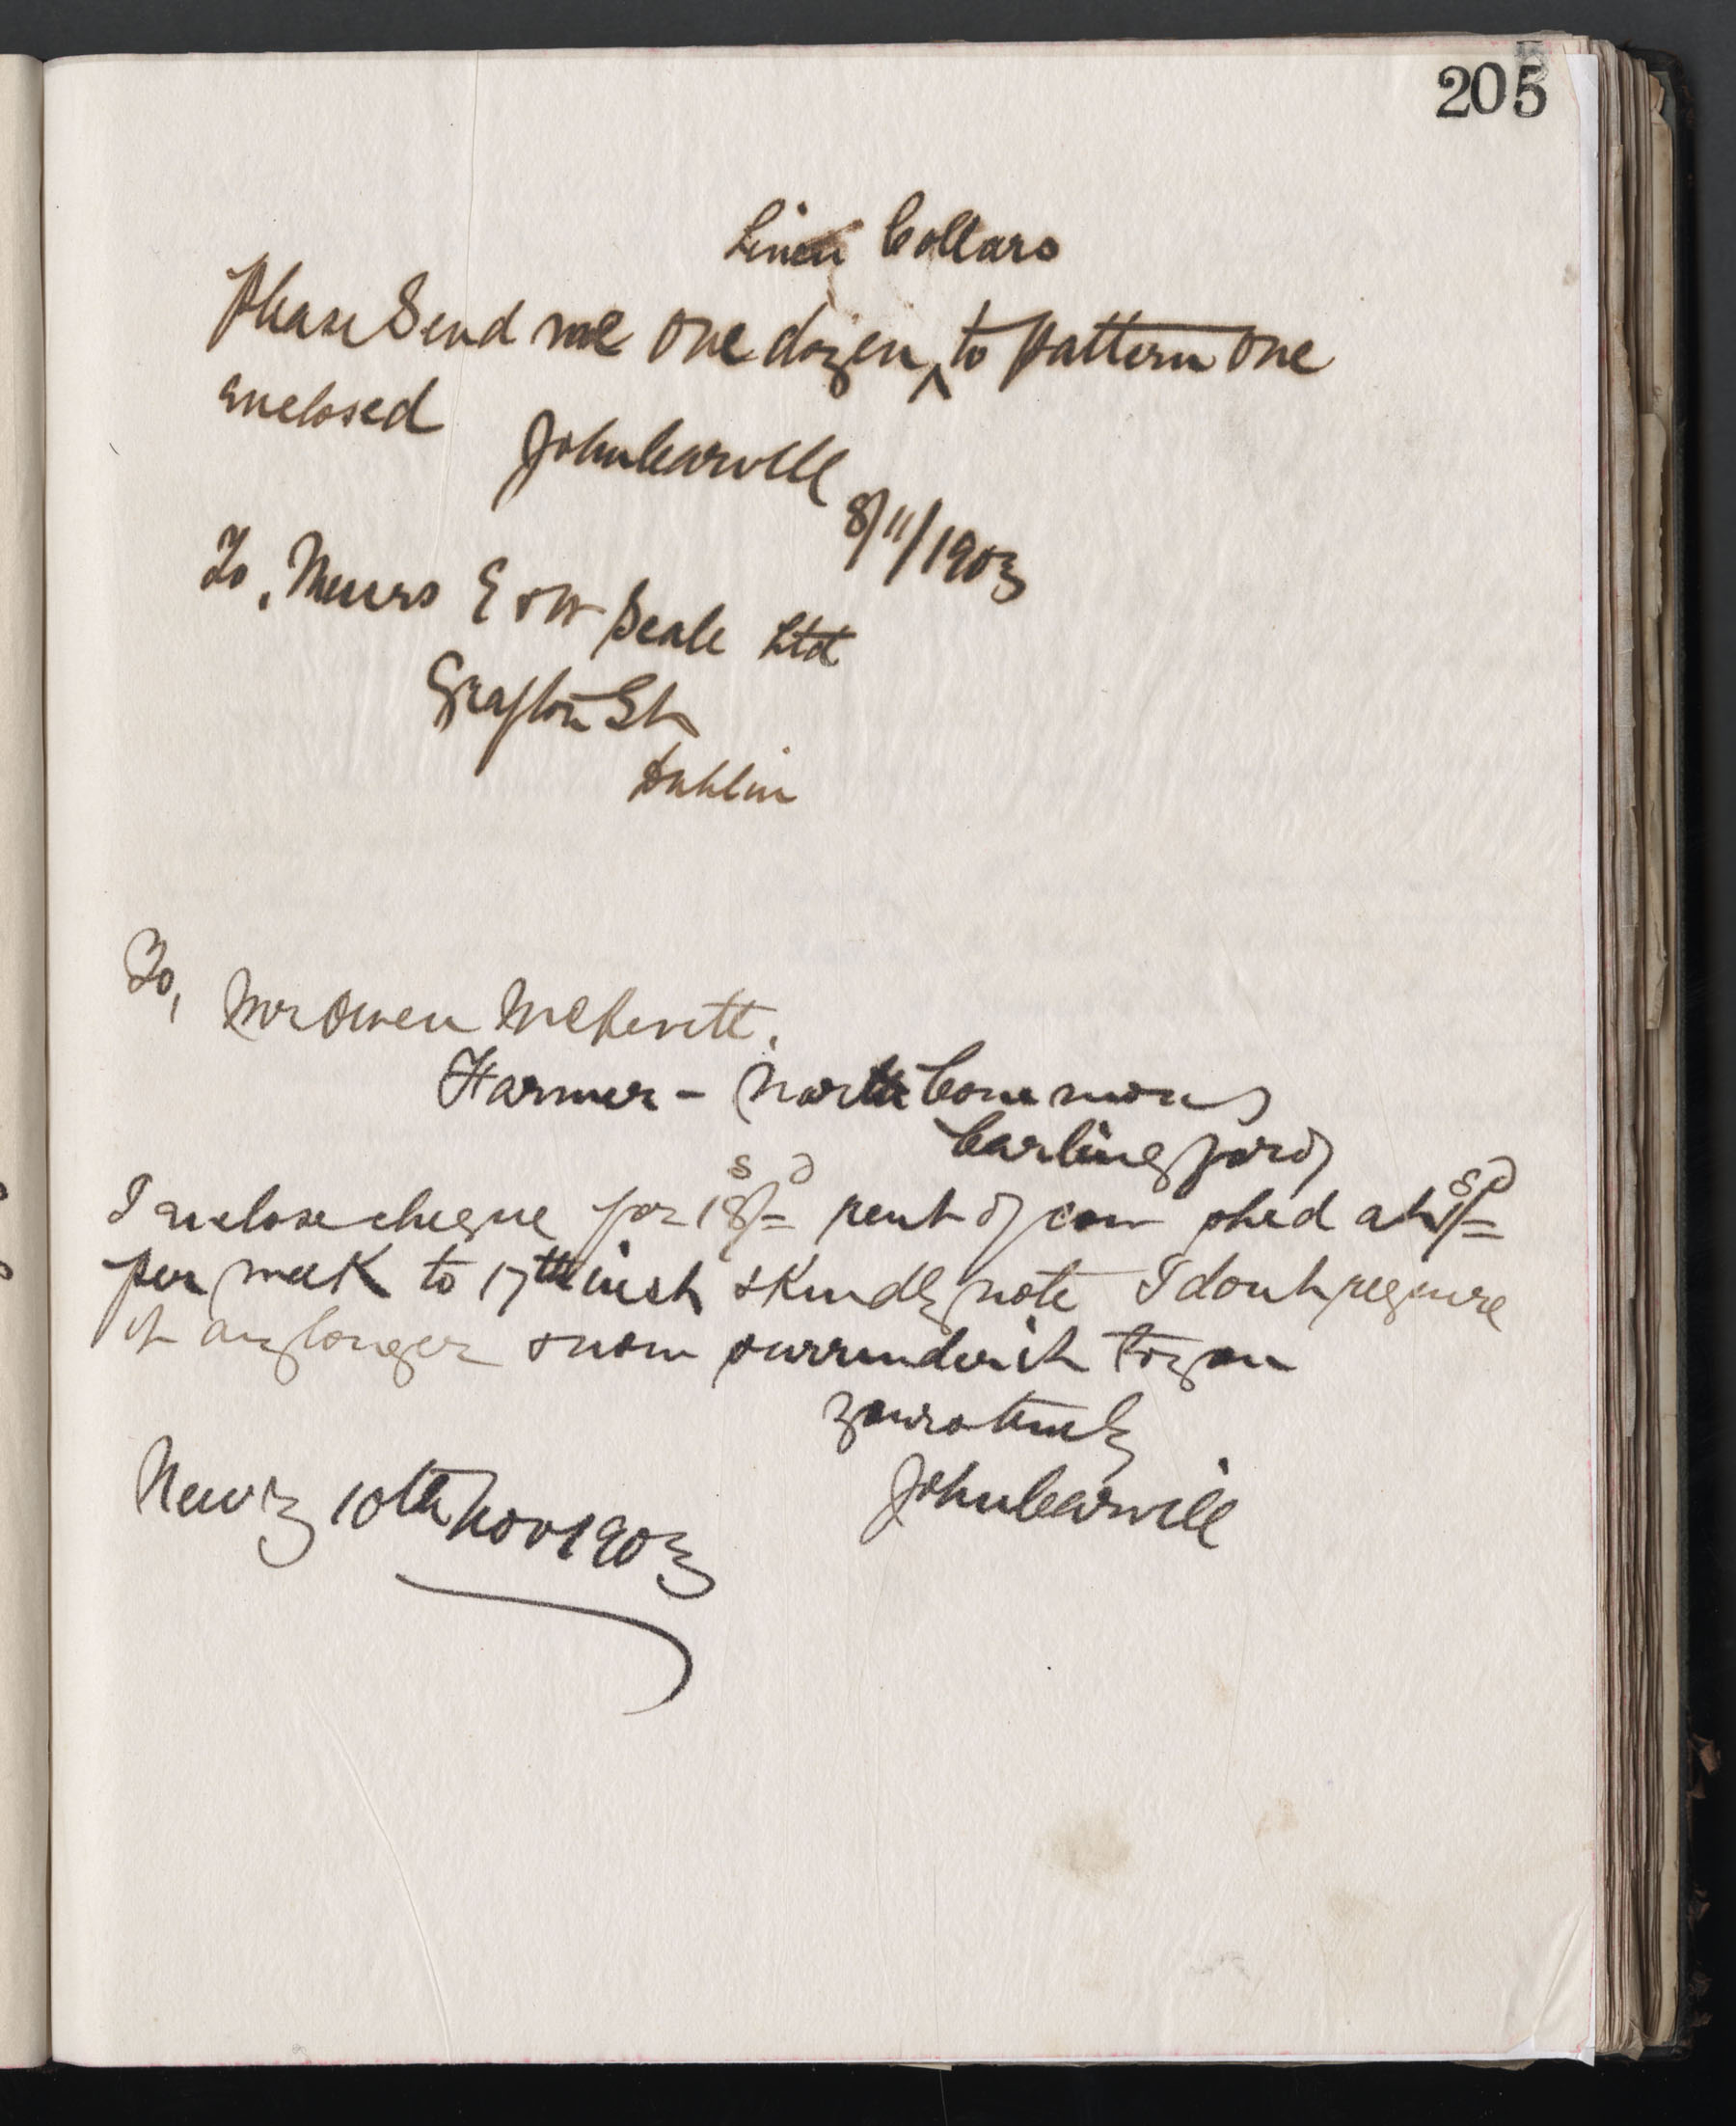 205
Linen Collars
Please Send me one dozen ^ to pattern one
enclosed John Carvill
8/11/1903
To, Messrs E & W Seale Ltd
Grafton St
Dublin
To,
Mr Owen McKevitt.
Farmer - North Commons
Carlingford
I enclose cheque for 18s/=d rent of cow shed at 1s/=d
per week to 17th inst & Kindly note I dont require
it any longer & now surrender it to you
yours truly
John Carvill
Newry 10th Nov 1903